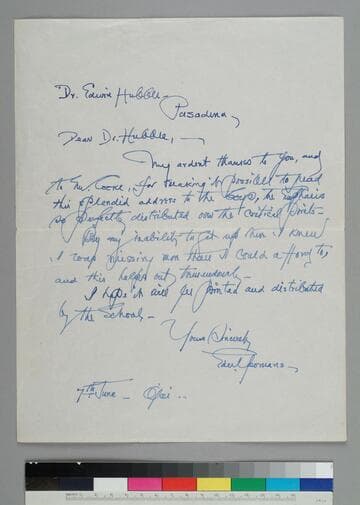 Dr. Edwin Hubble –
Pasadena,
Dear Dr. Hubble, —
My ardent thanks to you, and
to Mr. Cooke, for making it possible to read
this splendid address to the boys, the emphasis
so perfectly distributed over the critical points –
By my inability to get up there I knew
I was missing more than I could afford to,
and this helped out tremendously –
I hope it will be printed and distributed
by the Schools –
Yours Sincerely
Edw. Yeomans –
7th June – Ojai ..